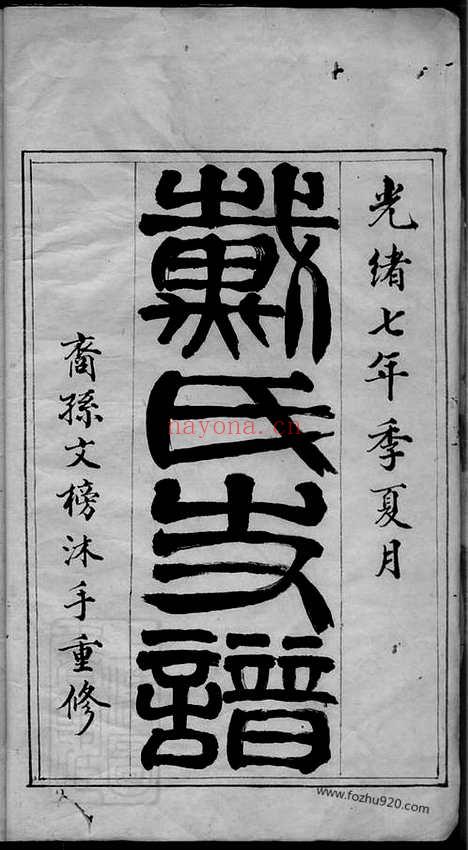 光緒七年季夏月
戴氏支譜
裔孫文榜沐手重修
nayona.cn
www.fozhu920.com